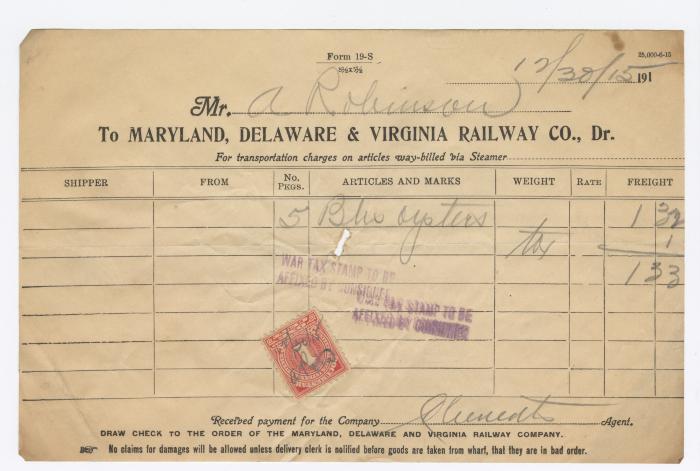 Form 19-S
8½x5½
25,000-6-15
12/30/15 191
Mr. A Robinson
To MARYLAND, DELAWARE & VIRGINIA RAILWAY CO., Dr.
For transportation charges on articles way-billed via Steamer
SHIPPER FROM No. PKGS. ARTICLES AND MARKS WEIGHT RATE FREIGHT
5 Bbls oysters 1 32
tax 1
1 33
WAR TAX STAMP TO BE
AFFIXED BY CONSIGNEE
WAR TAX STAMP TO BE
AFFIXED BY CONSIGNEE
Received payment for the Company Agent.
DRAW CHECK TO THE ORDER OF THE MARYLAND, DELAWARE AND VIRGINIA RAILWAY COMPANY.
No claims for damages will be allowed unless delivery clerk is notified before goods are taken from wharf, that they are in bad order.